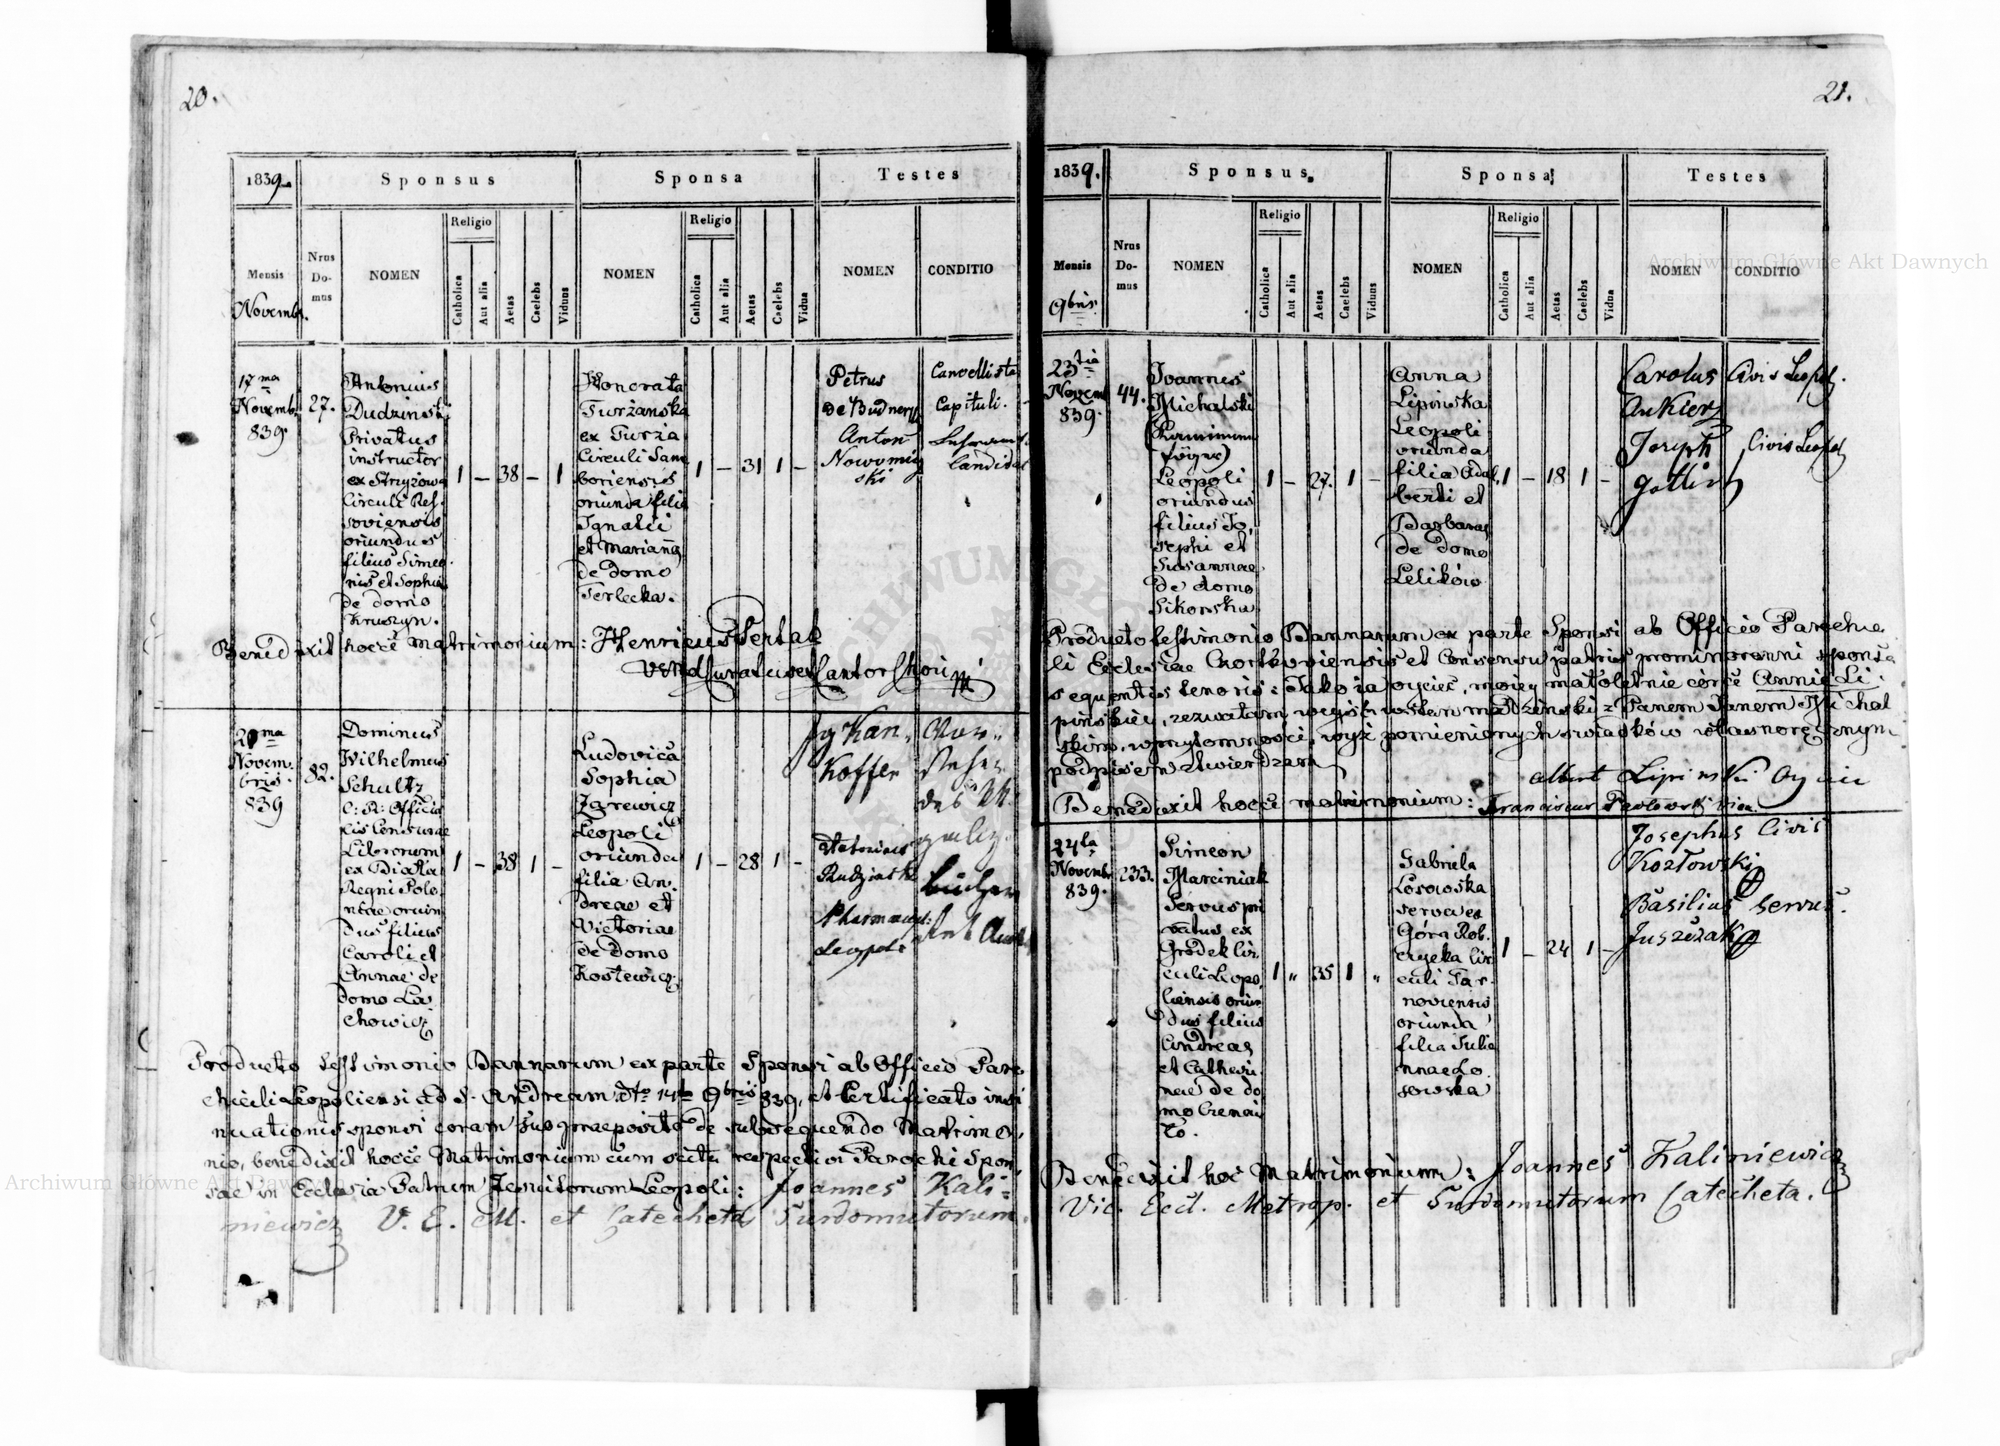 20.
1839
Sponsus
Sponsa
Testes
Mensis
Novembr.
Nrus Do-mus
NOMEN
Religio
Catholica
Aut alia
Aetas
Caelebs
Viduus
NOMEN
Religio
Catholica
Aut alia
Aetas
Caelebs
Vidua
NOMEN
CONDITIO
17ma
Novemb.
839.
27.
Antonius
Dudzinski
Privatus
instructor
ex Strzyżow
Circuli Res-
soviensis
oriundus
filius Simeo
nis et Sophia
de domo
Kruszyn.
1 – 38 – 1
Honorata
Turżanska
ex Turza
Circuli Sam
boriensis
oriunda filia
Ignatii
et Marianna
de domo
Terlecka.
1 – 31 1 –
Petrus
de Budnery
Anton
Nowomiey
ski
Cancellista
Capituli.
Candidat
Benedixit hocce matrimonium: Henricus Pertak
20ma
Novem.
bris.
839
82.
Dominus
Wilhelmus
Schultz
C: R: Officia
lis Censurae
Librorum
ex Biała
Regni Polo
niae oriun
dus filius
Caroli et
Annae de
domo La
chowicz
1 – 38 1 –
Ludovica
Sophia
Zgrewicz
Leopoli
oriunda
filia An.
dreae et
Victoriae
de Domo
Kostewicz
1 – 28 1 –
Koffer
Antonius
Leopoli
Producto testimonio Bannorum ex parte Sponsi ab Officio Paro
chiali Leopoliensi ad S. Andream dto 14ta 9bris 839, et Certificato insi
nuationis sponsi coram suo praeposito de subsequendo Matrimo,
nio, benedixit hocce Matrimonium cum scitu respectivi Parochi Spon,
sae in Ecclesia Patrum Jesuitorum Leopoli: Joannes Kali=
niewicz V. E. M. et Catecheta Surdomutorum.
21.
1839.
Sponsus
Sponsa
Testes
Mensis
9bris.
Nrus Do-mus
NOMEN
Religio
Catholica
Aut alia
Aetas
Caelebs
Viduus
NOMEN
Religio
Catholica
Aut alia
Aetas
Caelebs
Vidua
NOMEN
CONDITIO
23tia
Novem
839.
44.
Joannes
Michalski
Leopoli
oriundus
filius Jo,
sephi et
Susannae
de domo
Sikorska
1 – 27. 1 –
Anna
Lipinska
Leopoli
oriunda
filia Adal,
berti et
Barbarae
de domo
Lelików
1 – 18 1 –
Carolus
Ankiers
Joseph
Civis Leopol.
Civis Leopol
Producto testimonio Bannorum ex parte Sponsi ab Officio Parochia
li Ecclesiae Czortkoviensis et Consensu patris prominorenni sponsa
sequentis tenoris: Jako ia oyciec, moiey małoletnie córce Annie Li
pinskiey, zezwalam wejść w stan małżenski z Panem Janem Michal
skim, w przytomności, wyż pomienionych swiadków własnoręcznym
podpisem ztwierdzam
Albert Lipinski Oyciec
Benedixit hocce matrimonium: Franciscus Pawlowski Vica.
24ta
Novembr
839.
233.
Simeon
Marciniak
Servus pri
vatus ex
Grodek Cir
culi Leopo,
liensis oriun
dus filius
Andreas
et Catheri
nae de do
mo
1 „ 35 1 „
Gabriela
Losowska
serva ex
Góra Rob.
czycka Cir
culi Tar
noviensis
oriunda
filia Julia
nnae Lo
sowska
1 – 24 1 –
Josephus Civis
Kozłowski
Basilius Servus.
Juszczak
Benedixit hoc Matrimonium: Joannes Kaliniewicz
Vic. Eccl. Metrop. et Surdomutorum Catecheta.
Archiwum Główne Akt Dawnych
Archiwum Główne Akt Dawnych